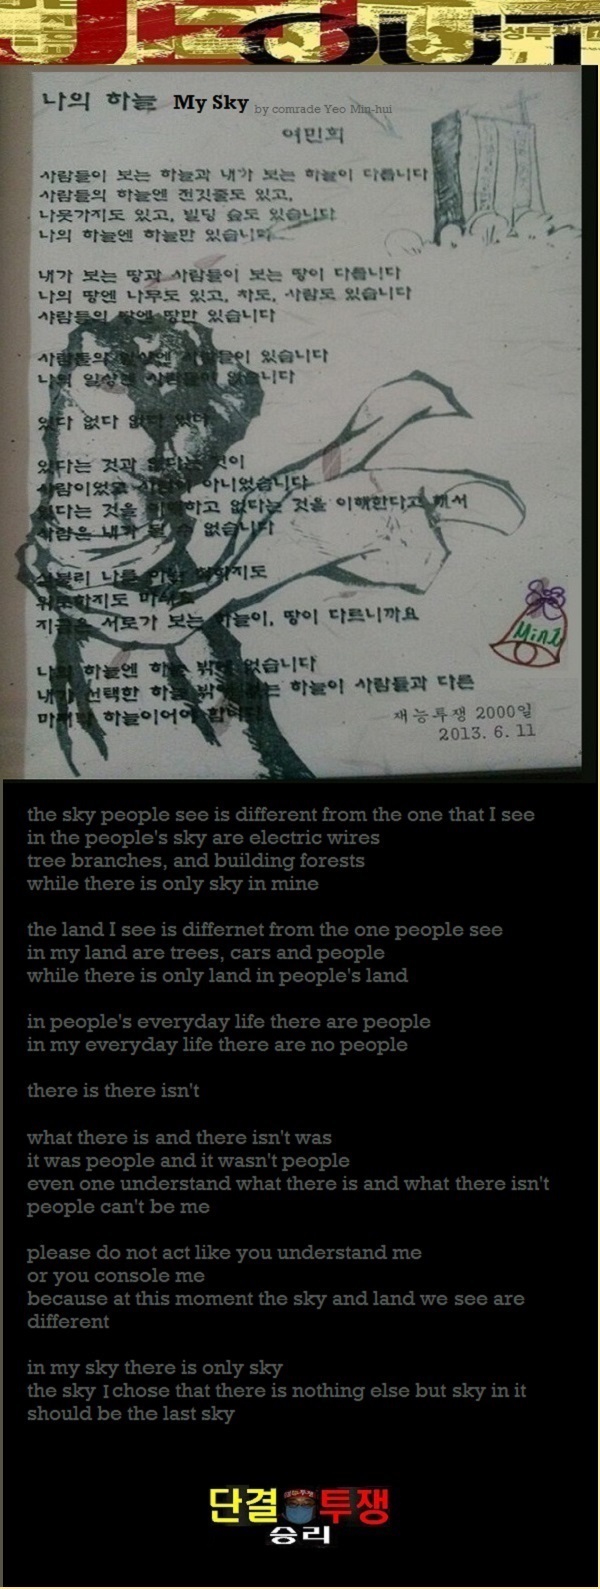 나의 하늘 My Sky by comrade Yeo Min-hui
여민희
사람들이 보는 하늘과 내가 보는 하늘이 다릅니다
사람들의 하늘엔 전깃줄도 있고,
나뭇가지도 있고, 빌딩 숲도 있습니다
나의 하늘엔 하늘만 있습니다
내가 보는 땅과 사람들이 보는 땅이 다릅니다
나의 땅엔 나무도 있고, 차도, 사람도 있습니다
사람들의 땅엔 땅만 있습니다
사람들의 일상엔 사람들이 있습니다
나의 일상엔 사람들이 없습니다
있다 없다 없다 있다
있다는 것과 없다는 것이
사람이었고 사람이 아니었습니다
있다는 것을 이해하고 없다는 것을 이해한다고 해서
사람은 내가 될 수 없습니다
섣불리 나를 아는 척하지도
위로하지도 마세요
지금은 서로가 보는 하늘이, 땅이 다르니까요
나의 하늘엔 하늘 밖에 없습니다
내가 선택한 하늘 밖에 없는 하늘이 사람들과 다른
마지막 하늘이어야 합니다
Mint
재능투쟁 2000일
2013. 6. 11
the sky people see is different from the one that I see
in the people's sky are electric wires
tree branches, and building forests
while there is only sky in mine
the land I see is differnet from the one people see
in my land are trees, cars and people
while there is only land in people's land
in people's everyday life there are people
in my everyday life there are no people
there is there isn't
what there is and there isn't was
it was people and it wasn't people
even one understand what there is and what there isn't
people can't be me
please do not act like you understand me
or you console me
because at this moment the sky and land we see are
different
in my sky there is only sky
the sky I chose that there is nothing else but sky in it
should be the last sky
단결 투쟁
승리